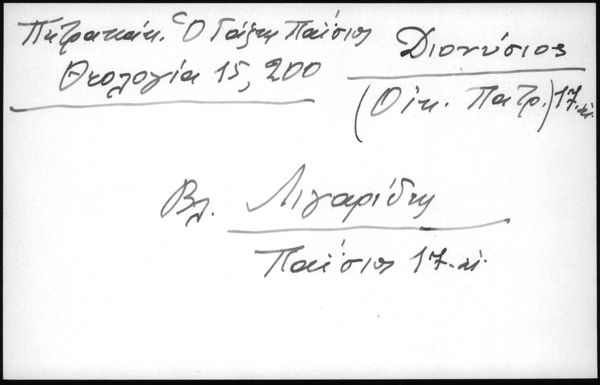 Πετρακάκ. Ὁ Γάζης Παΐσιος
Θεολογία 15, 200
Διονύσιος
(Οἰκ. Πατρ.) 17. αἰ.
Βλ. Λιγαρίδης
Παΐσιος 17. αἰ.